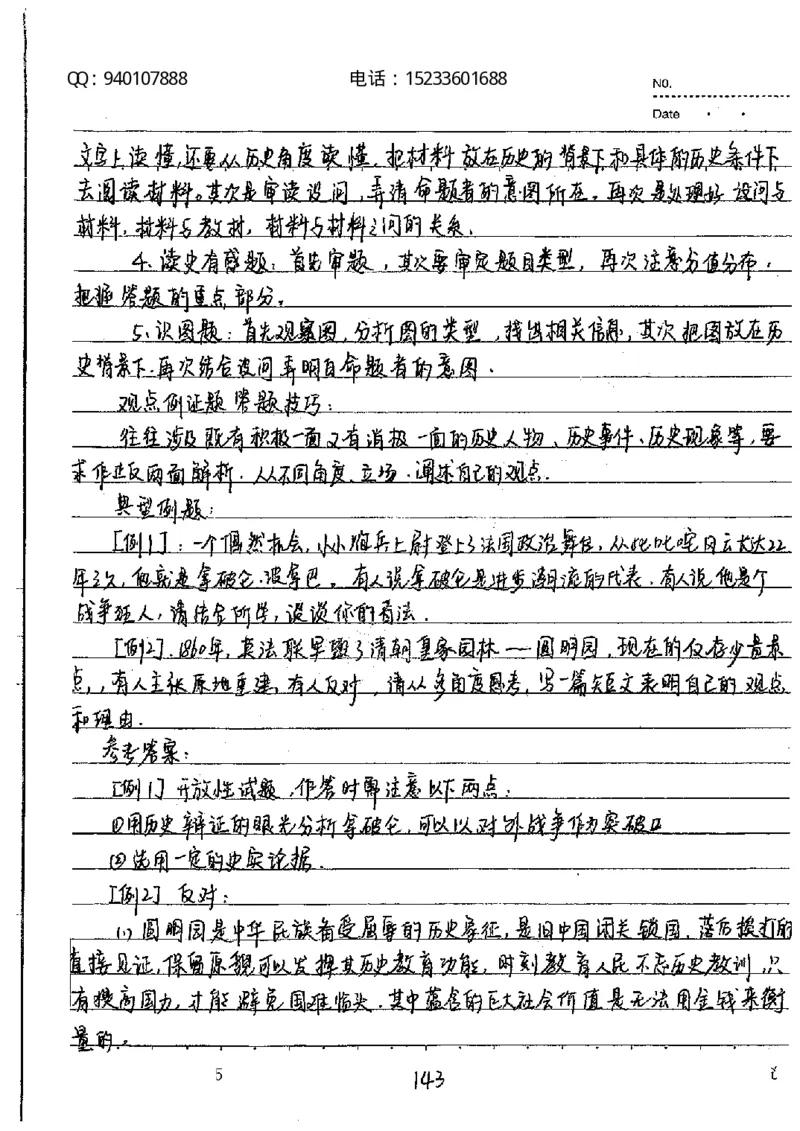 QQ：940107888 电话：15233601688 NO.
Date
文字上读懂,还要从历史角度读懂.把材料放在历史的背景下和具体的历史条件下
去阅读材料。其次是审读设问,弄清命题者的意图所在。再次是处理好设问与
材料,材料与教材,材料与材料之间的关系.
4、读史有感题：首先审题,其次要审定题目类型,再次注意分值分布,
把握答题的重点部分。
5、识图题：首先观察图,分析图的类型,找出相关信息,其次把图放在历
史背景下.再次结合设问弄明白命题者的意图.
观点例证题答题技巧：
往往涉及既有积极一面又有消极一面的历史人物、历史事件、历史现象等,要
求作正反两面解析.从不同角度、立场.阐述自己的观点.
典型例题：
[例1]：一个偶然机会,小小炮兵上尉登上了法国政治舞台,从此叱咤风云长达22
年之久,他就是拿破仑·波拿巴。有人说拿破仑是进步潮流的代表.有人说他是个
战争狂人,请结合所学,谈谈你的看法.
[例2].1860年,英法联军毁了清朝皇家园林——圆明园,现在的仅存少量景
点,,有人主张原地重建,有人反对,请从多角度思考,写一篇短文表明自己的观点
和理由.
参考答案：
[例1]开放性试题,作答时需注意以下两点：
①用历史辩证的眼光分析拿破仑,可以以对外战争作为突破口
②选用一定的史实论据.
[例2]反对：
(1)圆明园是中华民族备受屈辱的历史象征,是旧中国闭关锁国.落后挨打的
直接见证,保留原貌可以发挥其历史教育功能,时刻教育人民不忘历史教训,只
有提高国力,才能避免国难临头.其中蕴含的巨大社会价值是无法用金钱来衡
量的。
5 143